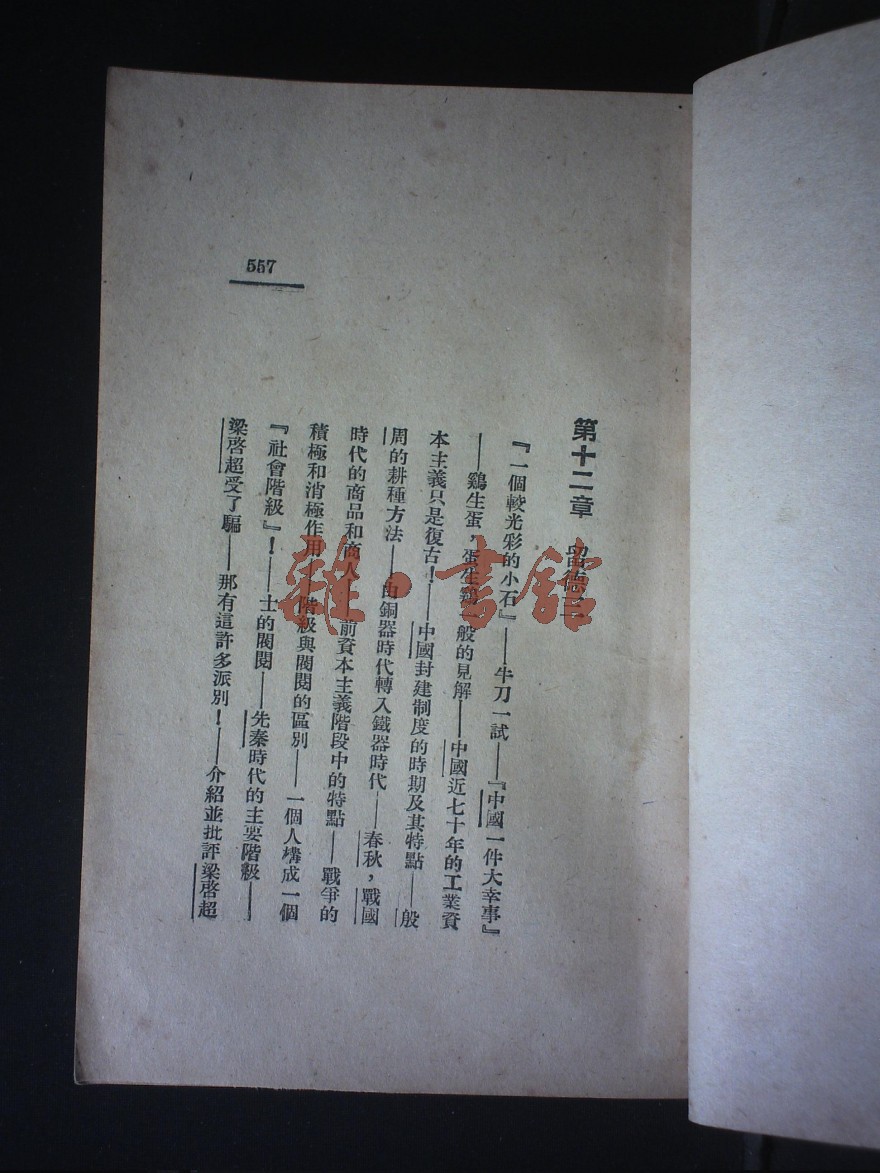 557
第十二章 留德二
『一個較光彩的小石』——牛刀一試——『中國一件大幸事』
——鷄生蛋，蛋生鷄一般的見解——中國近七十年的工業資
本主義只是復古！——中國封建制度的時期及其特點——殷
周的耕種方法——由銅器時代轉入鐵器時代——春秋，戰國
時代的商品和商人——前資本主義階段中的特點——戰爭的
積極和消極作用——階級與閥閱的區別——一個人構成一個
『社會階級』！——士的閥閱——先秦時代的主要階級——
梁啓超受了騙——那有這許多派別！——介紹並批評梁啓超
雜·書館